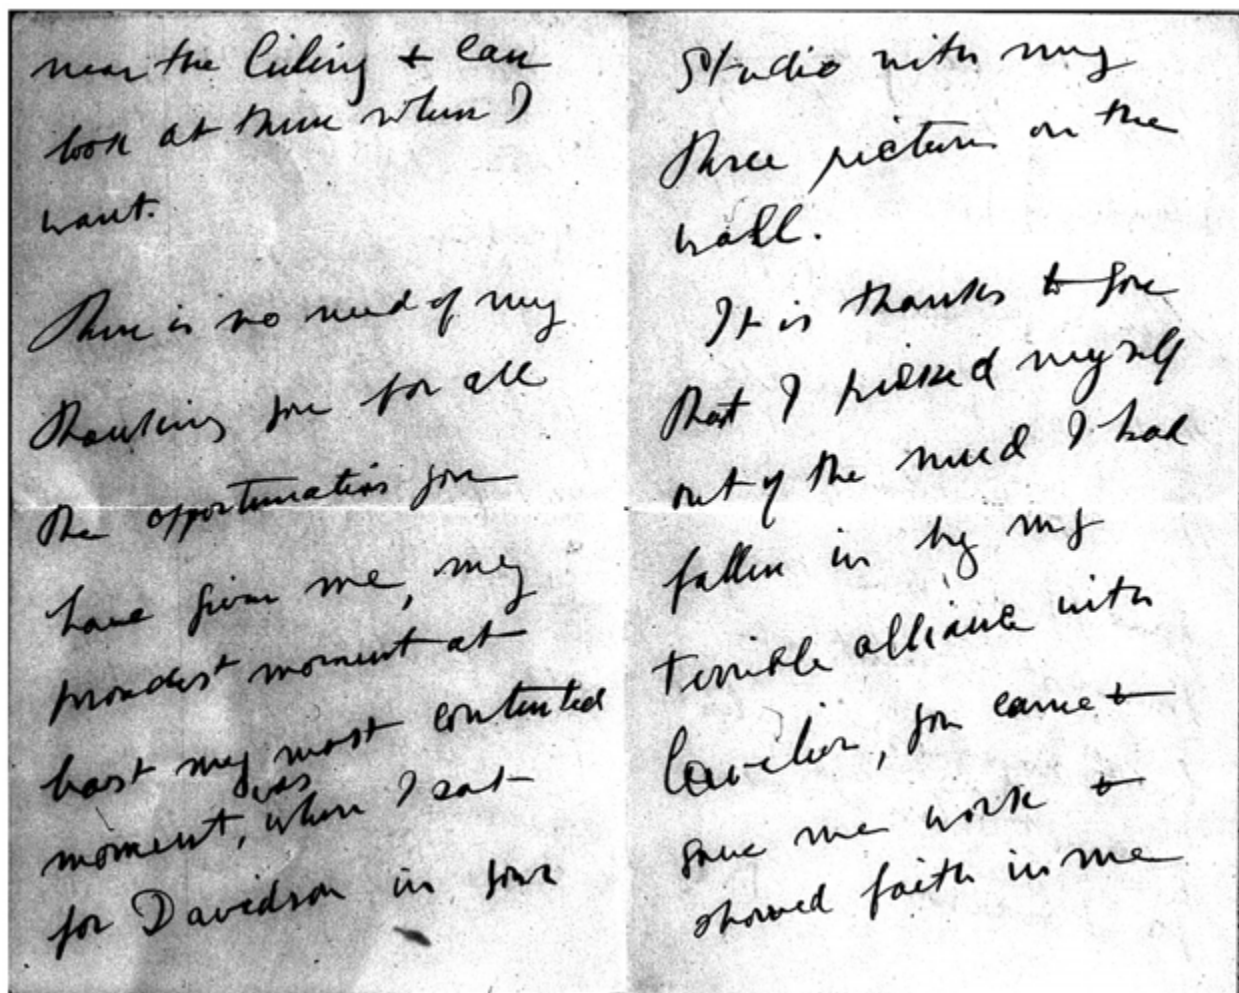 near the Ceiling & can
look at them when I
want.
There is no need of my
thanking you for all
the opportunities you
have given me, my
proudest moment at
least my most contented
moment, was when I sat
for Davidson in your
Studio with my
three pictures on the
wall.
It is thanks to you
that I picked myself
out of the mud I had
fallen in by my
terrible alliance with
you came &
gave me work &
showed faith in me